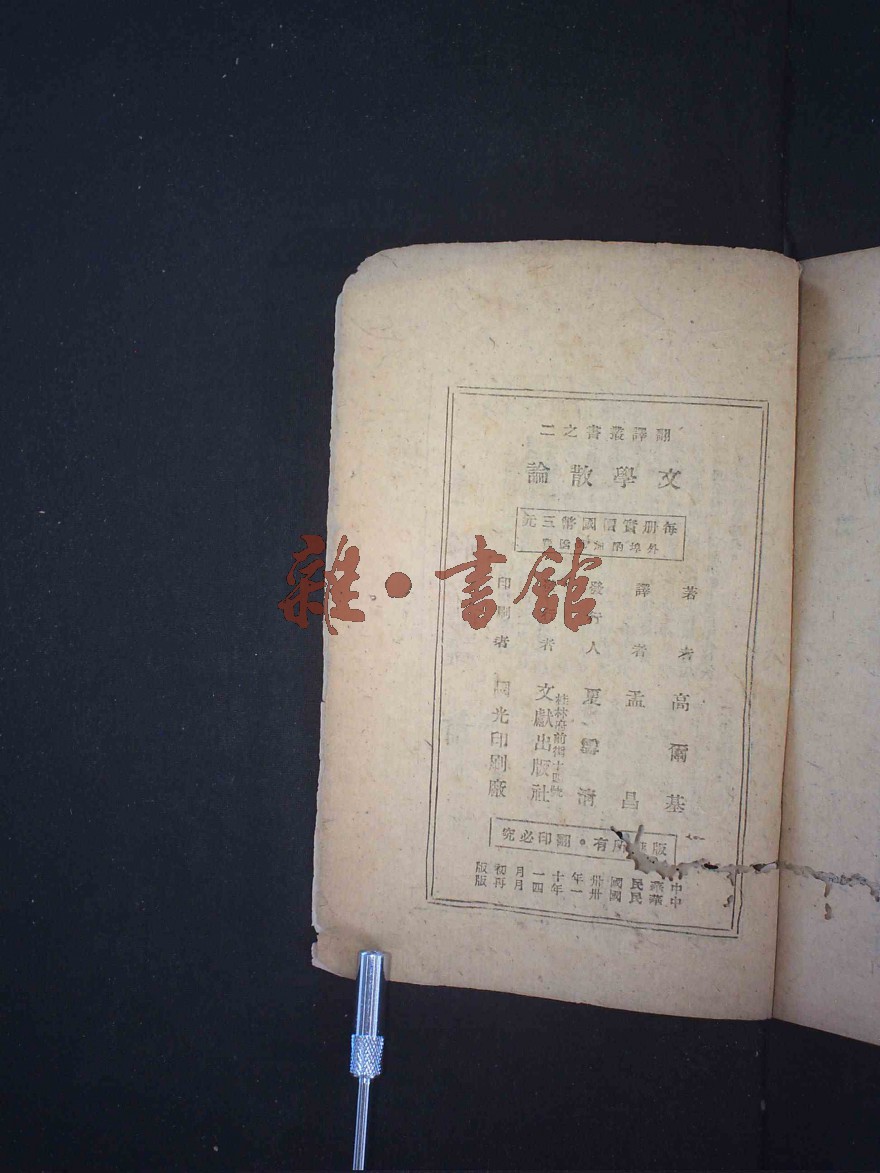 翻譯叢書之二
文學散論
每册實價國幣三元
外埠酌加
著者 高爾基
譯者 孟昌
發行人 夏清
者 文獻出版社
桂林府前街
印刷者 國光印刷廠
版權所有・翻印必究
中華民國卅年十一月初版
中華民國卅一年四月再版
雜・書館